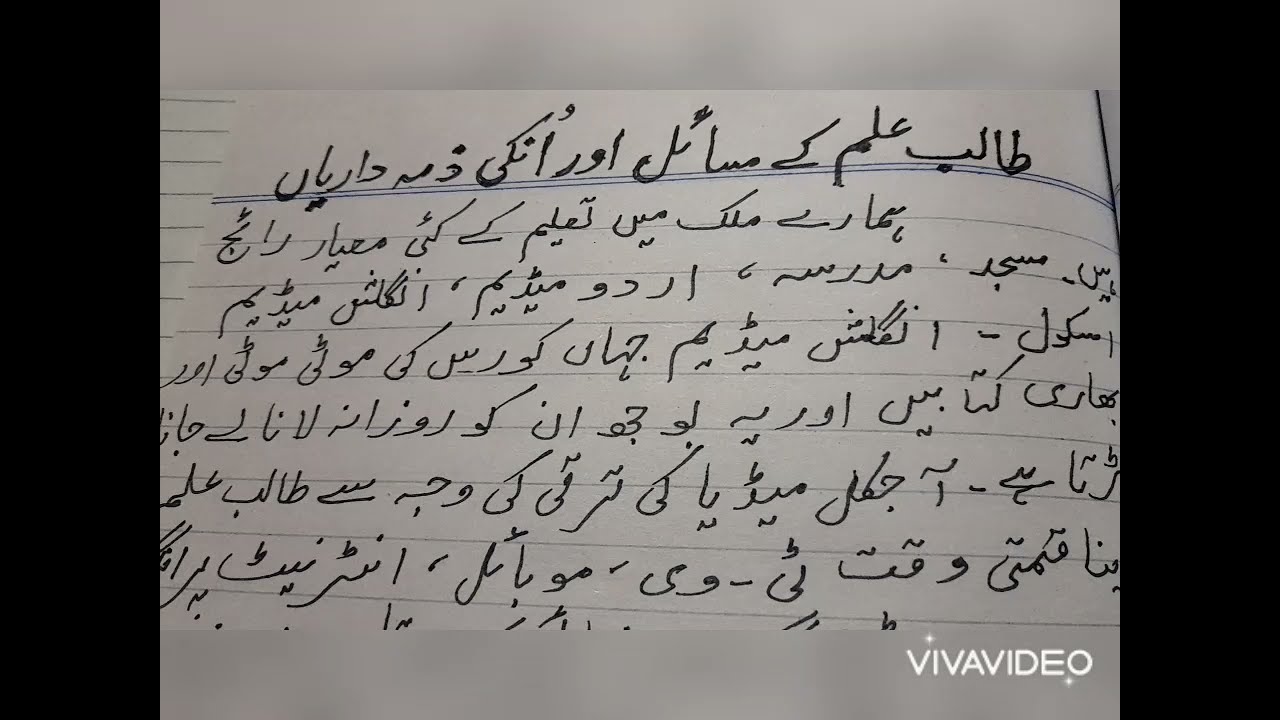 طالب علم کے مسائل اور اُنکی ذمہ داریاں
ہمارے ملک میں تعلیم کے کئی معیار رائج
ہیں۔ مسجد ، مدرسہ ، اردو میڈیم ، انگلش میڈیم
اسکول - انگلش میڈیم جہاں کورس کی موٹی موٹی اور
بھاری کتابیں اور یہ بوجھ ان کو روزانہ لانا لے جانا
پڑتا ہے۔ آجکل میڈیا کی ترقی کی وجہ سے طالب علم
قیمتی وقت ٹی-وی ، موبائل ، انٹرنیٹ پر
VIVAVIDEO